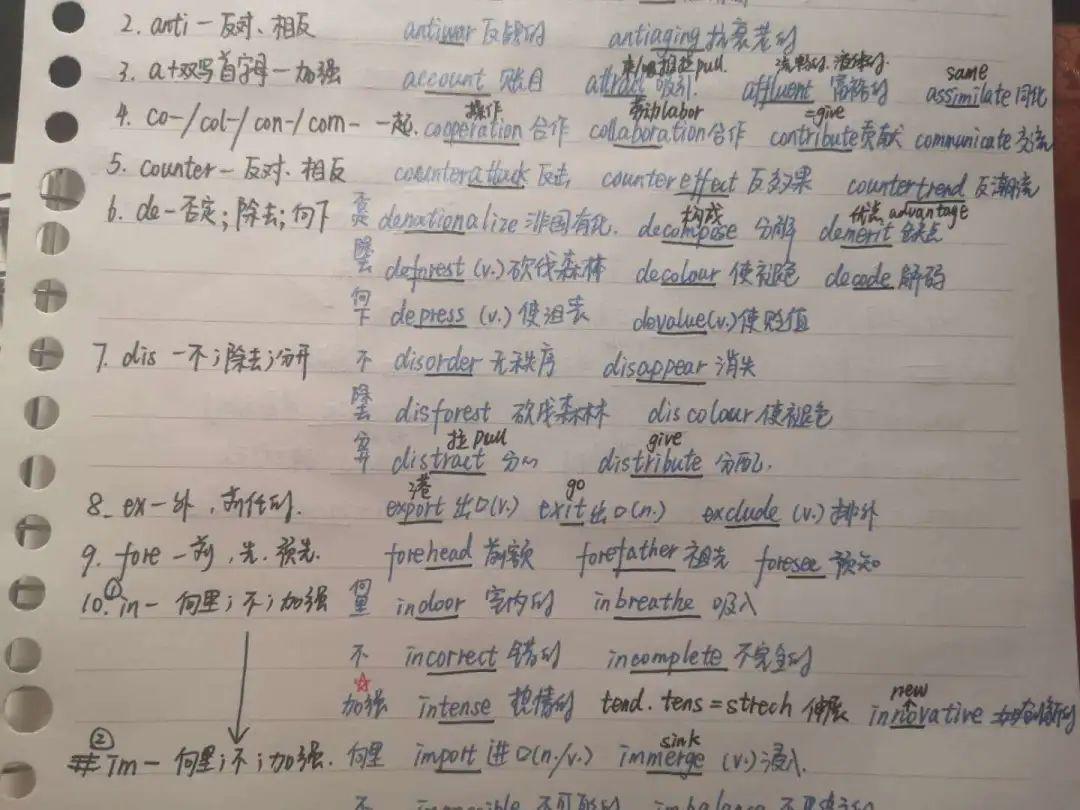 2. anti - 反对、相反 antiwar 反战的 antiaging 抗衰老的
拉pull. 流畅的、液体的. same
3. a+双写首字母 - 加强 account 账目 attract 吸引. affluent 富裕的 assimilate 同化
操作 劳动labor =give
4. co-/col-/con-/com- 一起. cooperation 合作 collaboration 合作 contribute 贡献 communicate 交流
5. counter - 反对、相反 counterattack 反击 countereffect 反效果 countertrend 反潮流
构成 优点 advantage
6. de - 否定；除去；向下 否定 denationalize 非国有化. decompose 分解 demerit 缺点
除去 deforest (v.) 砍伐森林 decolour 使褪色 decode 解码
向下 depress (v.) 使沮丧 devalue(v.)使贬值
7. dis - 不；除去；分开 不 disorder 无秩序 disappear 消失
除去 disforest 砍伐森林 discolour 使褪色
拉pull give
分开 distract 分心 distribute 分配.
港 go
8. ex - 外，前任的. export 出口(v.) exit 出口(n.) exclude (v.) 排外
9. fore - 前，先、预先. forehead 前额 forefather 祖先 foresee 预知
10. ① in - 向里；不；加强 向里 indoor 室内的 inbreathe 吸入
不 incorrect 错的 incomplete 不完全的
new
加强 intense 热情的 tend. tens = strech 伸展 innovative
② sink
im - 向里；不；加强. 向里 import 进口(n./v.) immerge (v.)浸入.
不 impossible 不可能的 imbalance